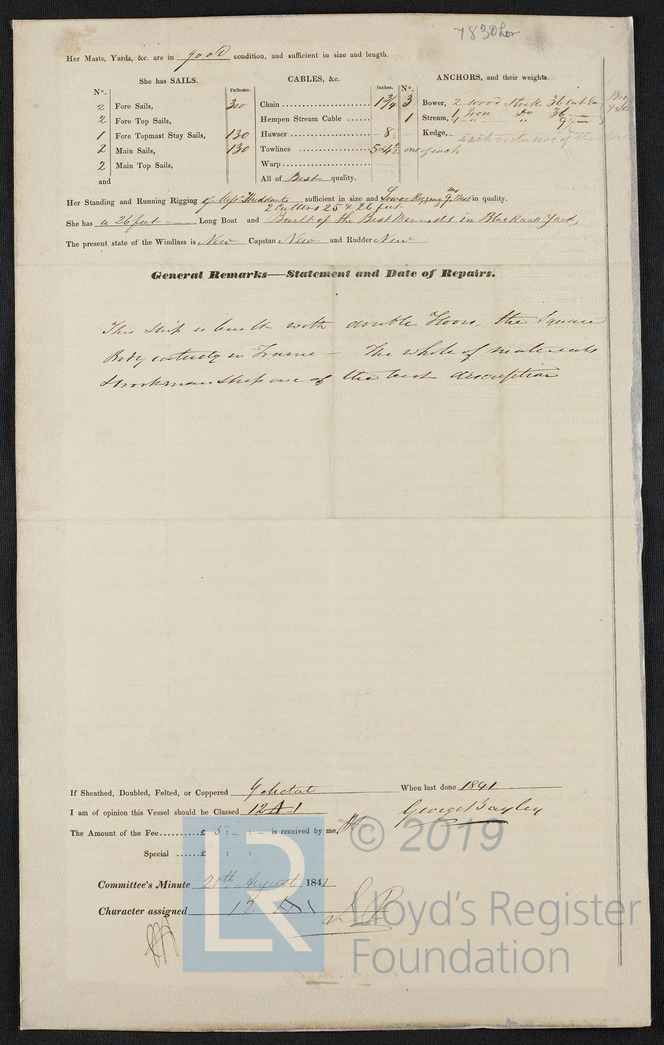 7830 Lon
Her Masts, Yards, &c. are in good condition, and sufficient in size and length.
She has SAILS. CABLES, &c. ANCHORS, and their weights.
N°. Fathoms. Inches. N°.
2 Fore Sails, 300 Chain 1 3/4 3 Bower, 2 Wood Stock 36
2 Fore Top Sails, Hempen Stream Cable 1 Stream, 1 Iron Do 36
1 Fore Topmast Stay Sails, 130 Hawser 8 Kedge,
2 Main Sails, 130 Towlines 5 & 4 1/2 one of each
2 Main Top Sails, Warp
and All of Best quality.
Her Standing and Running Rigging sufficient in size and Lower Rigging in quality.
2 Cutters 25 & 26 feet
She has a 26 feet Long Boat and Built of the Best in Blackwall Yard
The present state of the Windlass is New Capstan New and Rudder New
General Remarks—Statement and Date of Repairs.
This Ship is built with double Floors, the Square
Body entirely in Frame – The whole of materials
& workmanship are of the best description
If Sheathed, Doubled, Felted, or Coppered When last done 1841
I am of opinion this Vessel should be Classed 12 A 1 George Bayley
The Amount of the Fee £ 5 : - : - is received by me,
Special £ : :
Committee's Minute 20th August 1841
Character assigned 12 A 1
© 2019
LR
Lloyd's Register
Foundation